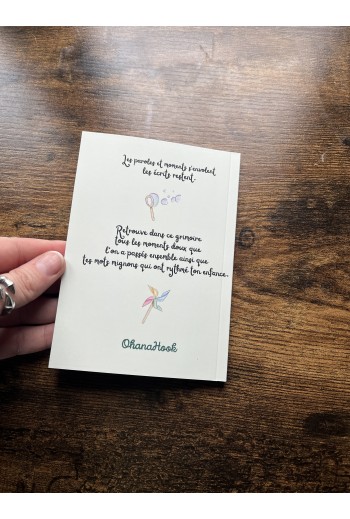 Les paroles et moments s'envolent
les écrits restent.
Retrouve dans ce grimoire
tous les moments doux que
l'on a passés ensemble ainsi que
les mots mignons qui ont rythmé ton enfance.
OhanaHook